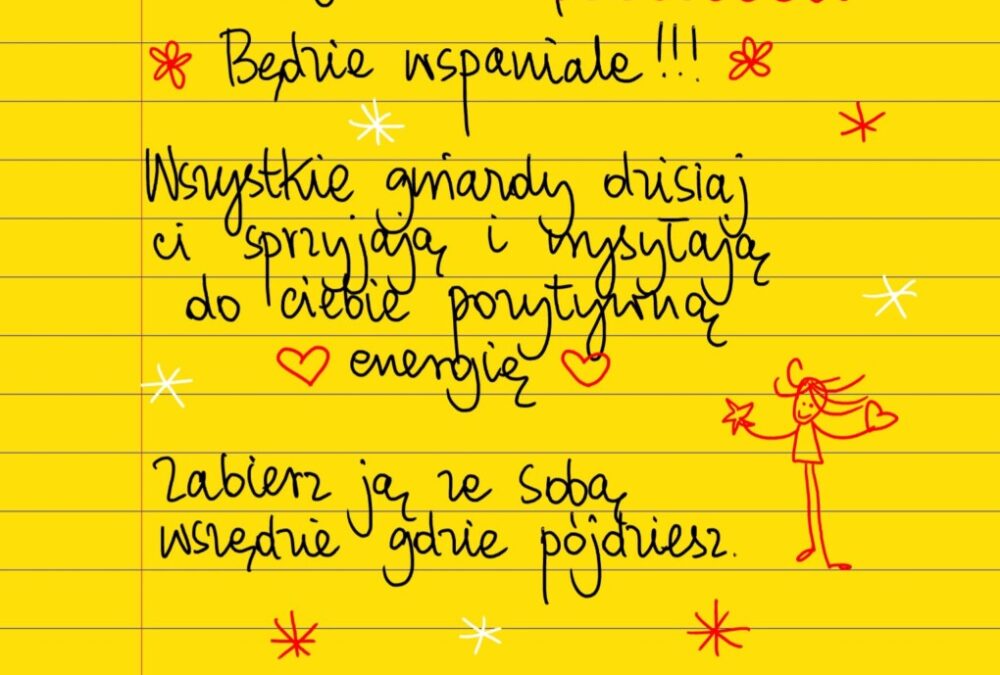 Będzie wspaniale !!!
Wszystkie gwiazdy dzisiaj
ci sprzyjają i wysyłają
do ciebie pozytywną
energię
Zabierz ją ze sobą
wszędzie gdzie pójdziesz.